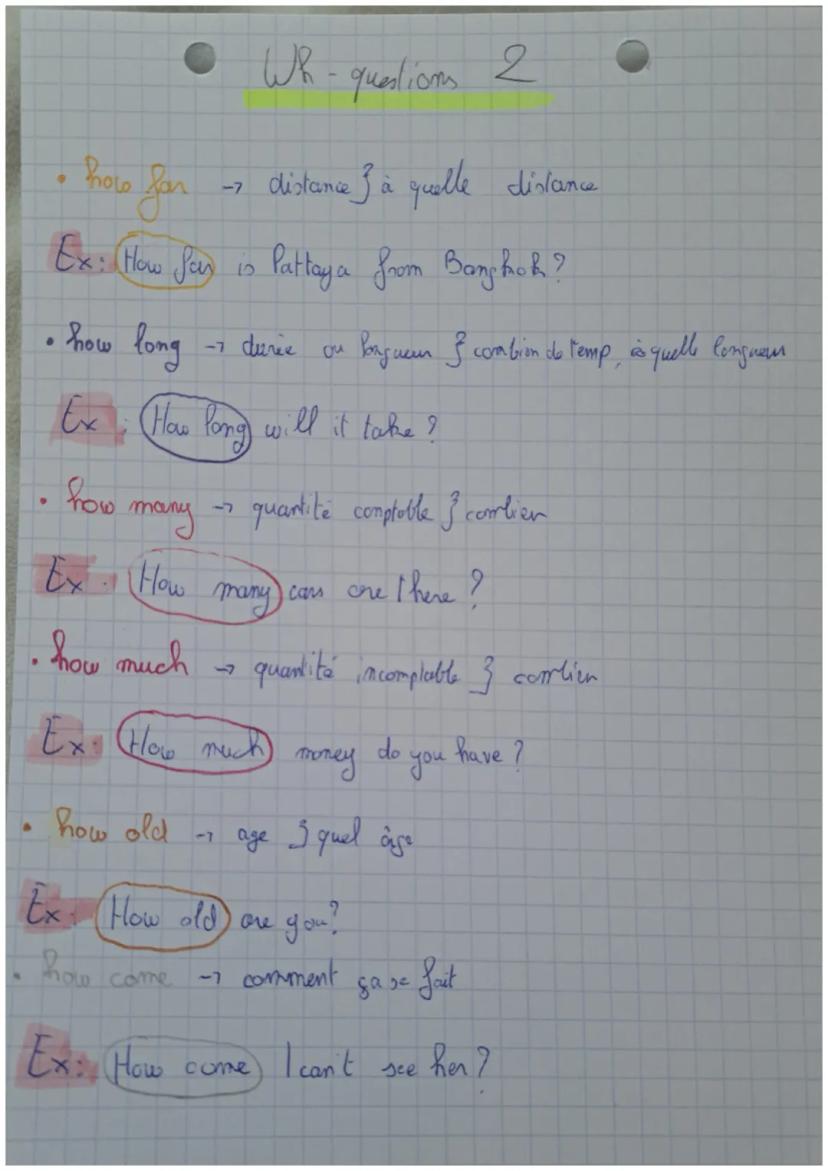 Wh-questions 2
• how far → distance } à quelle distance
Ex: How far is Pattaya from Bangkok?
• how long → durée ou longueur } combien de temp, à quelle longueur
Ex: How long will it take?
• how many → quantité comptable } combien
Ex: How many cars are there?
• how much → quantité incomptable } combien
Ex: How much money do you have?
• how old → age } quel âge
Ex: How old are you?
• how come → comment ça se fait
Ex: How come I can't see her?